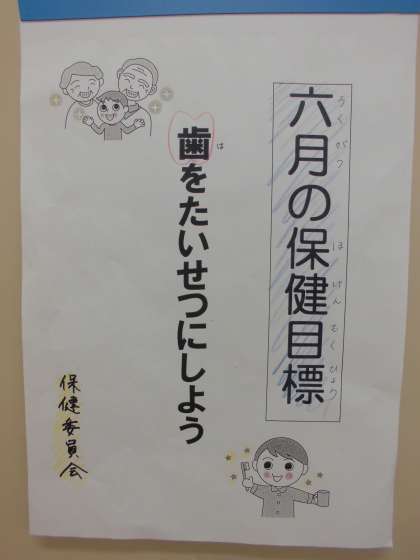 六月の保健目標
ろくがつ ほけんもくひょう
歯をたいせつにしよう
は
保健委員会